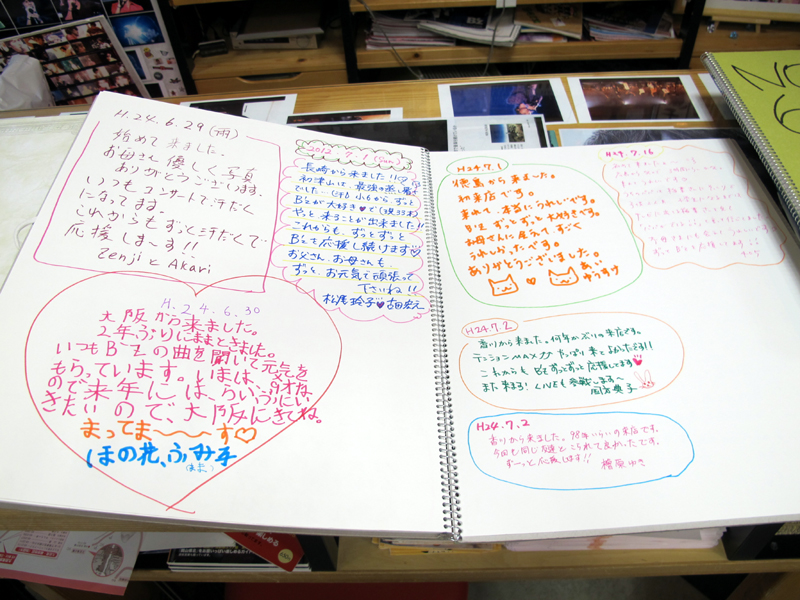 H.24.6.29(雨)
始めて来ました。
お母さん優しく写真
ありがとうございます。
いつもコンサートで汗だく
になってます。
これからもずっと汗だくで
応援しま〜す!!
ZenjiとAkari
H.24.6.30
大阪から来ました。
2年ぶりにままときました。
いつもB'zの曲を聞いて元気を
もらっています。いまは、9才な
ので来年には、らいぶにい
きたいので、大阪にきてね。
まってま〜〜す♡
ほの花、ふみ子
(まま)
2012.7.1(Sun)
長崎から来ました!!♡
初津山は最強の蒸し暑さ
でした…(汗) 小6から ずっと
B'zが大好き♥で(現33才)
やっと来ることが出来ました!!
これからも、ずっとずっと
B'zを応援し続けます♡
お父さん、お母さんも
ずっと、お元気で頑張って
下さいね!!
松尾 玲子♥古田宏之
H24.7.1
徳島から来ました。
初来店です。
来れて、本当にうれしいです。
B'z ずっとずっと大好きです。
お母さんに会えて すごく
うれしかったです。
ありがとうございました。
♡ あい
ゆうすけ
H24.7.16
H24.7.2
香川から来ました。何年かぶりの来店です。
テンションMAX やっぱり来てよかったです!!
これからも B'zずっとずっと応援します♥
また来まる! LIVEも参戦します〜
H24.7.2
香川から来ました。98年いらいの来店です。
今回も同じ友達とこられて良かったです。
ずーっと応援します!!
檜原ゆき
NO
6